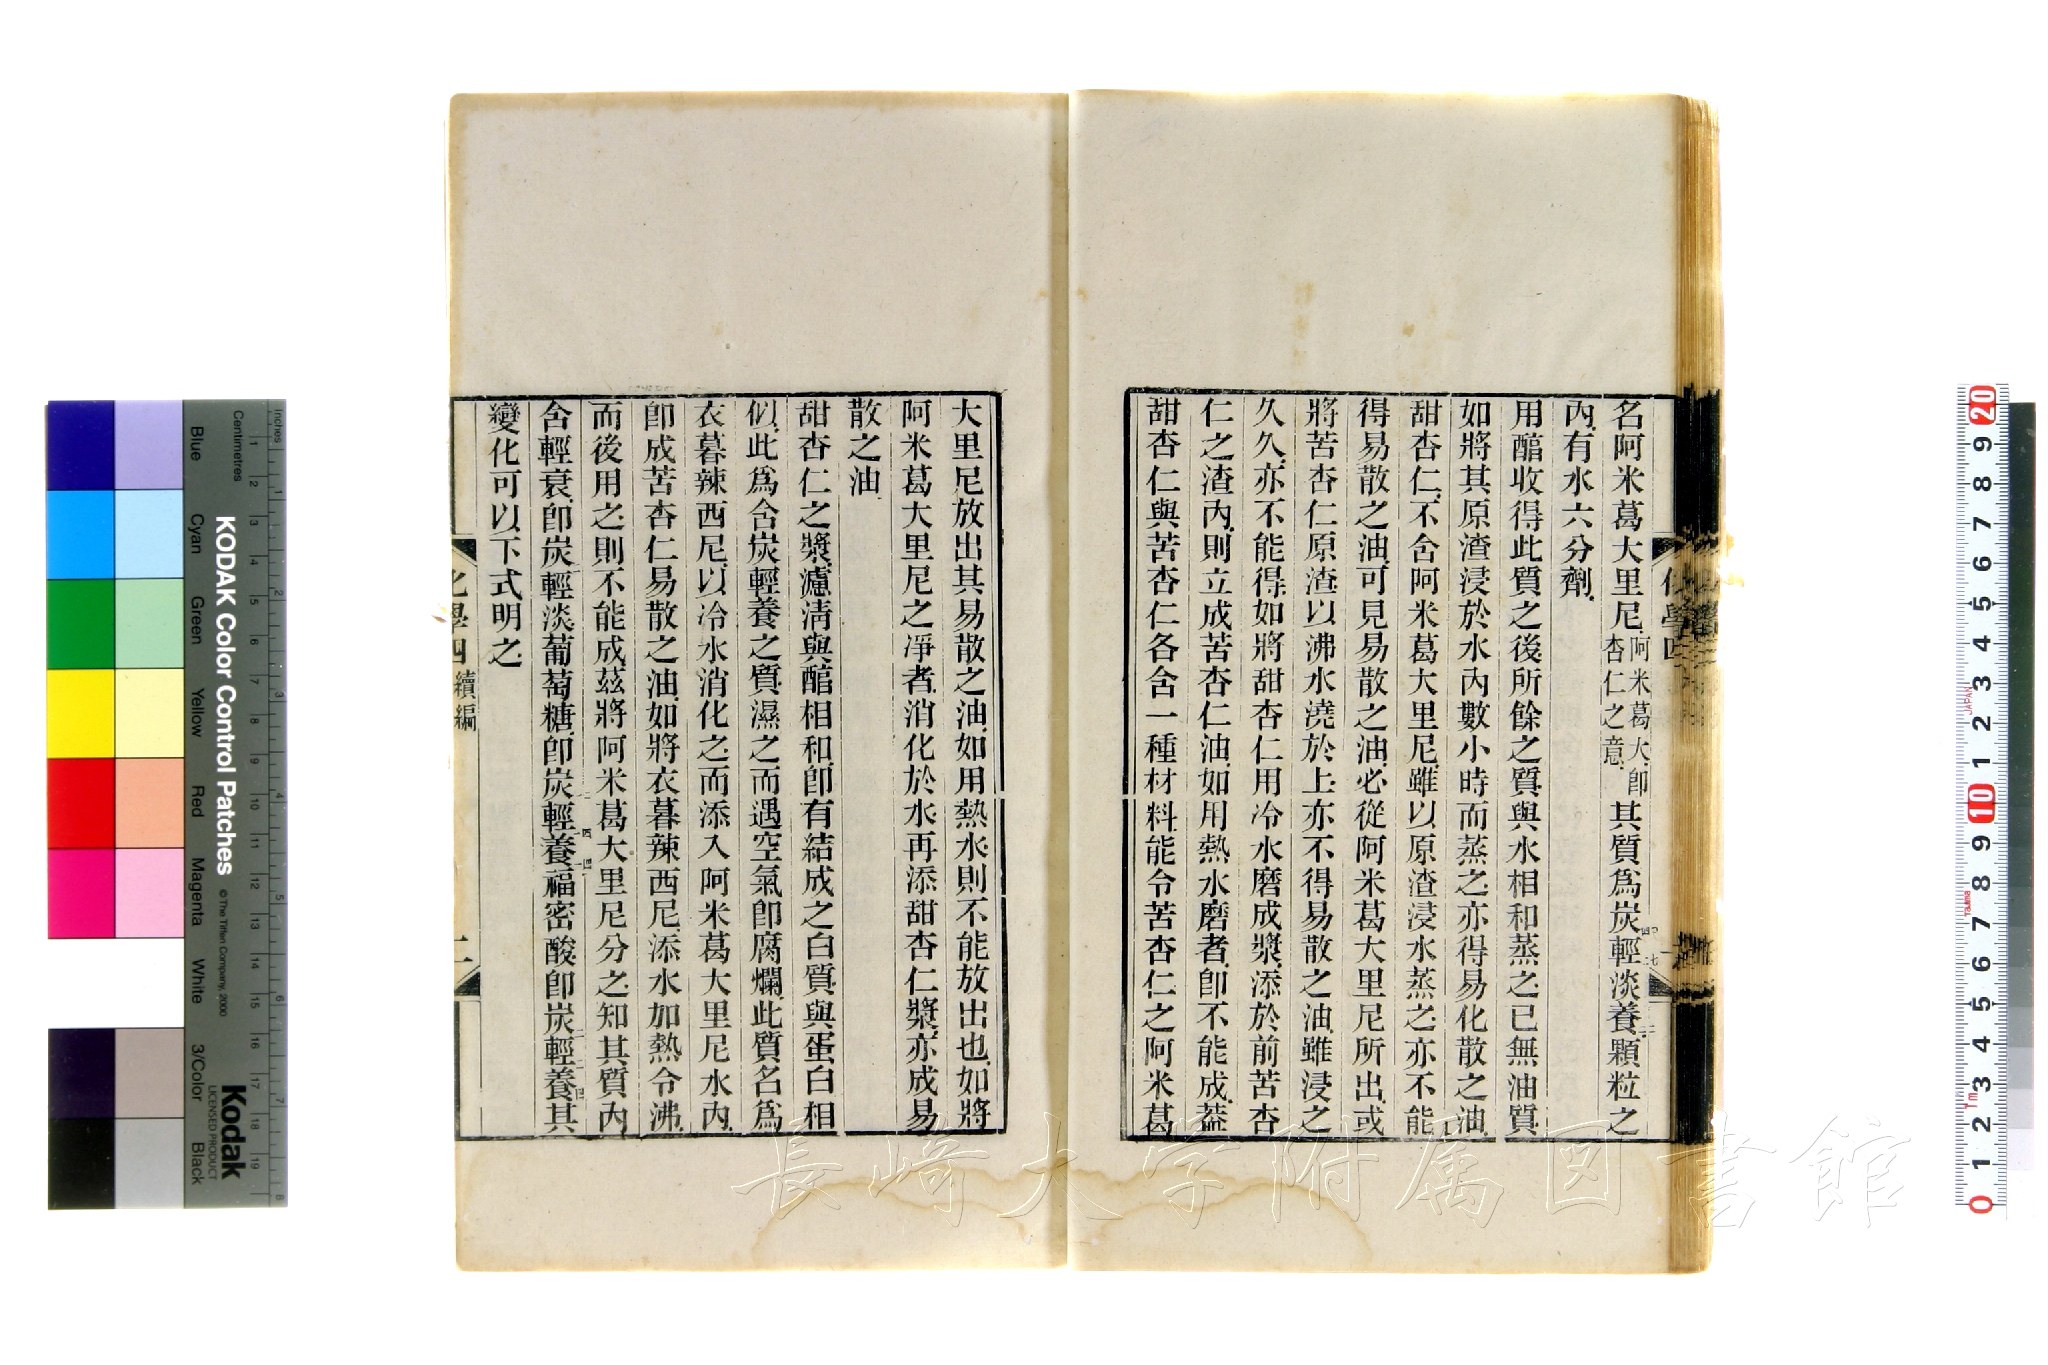 名阿米葛大里尼阿米葛大卽杏仁之意其質爲炭輕淡養顆粒之
內有水六分劑
用醕收得此質之後所餘之質與水相和蒸之已無油質
如將其原渣浸於水內數小時而蒸之亦得易化散之油
甜杏仁不含阿米葛大里尼雖以原渣浸水蒸之亦不能
得易散之油可見易散之油必從阿米葛大里尼所出或
將苦杏仁原渣以沸水澆於上亦不得易散之油雖浸之
久久亦不能得如將甜杏仁用冷水磨成漿添於前苦杏
仁之渣內則立成苦杏仁油如用熱水磨者卽不能成葢
甜杏仁與苦杏仁各含一種材料能令苦杏仁之阿米葛
大里尼放出其易散之油如用熱水則不能放出也如將
阿米葛大里尼之凈者消化於水再添甜杏仁漿亦成易
散之油
甜杏仁之漿濾淸與醕相和卽有結成之白質與蛋白相
似此爲含炭輕養之質濕之而遇空氣卽腐爛此質名爲
衣暮辣西尼以冷水消化之而添入阿米葛大里尼水內
卽成苦杏仁易散之油如將衣暮辣西尼添水加熱令沸
而後用之則不能成茲將阿米葛大里尼分之知其質內
含輕衰卽炭輕淡葡萄糖卽炭輕養福密酸卽炭輕養其
變化可以下式明之
化學四 續編
二
長崎大学附属図書館
KODAK Color Control Patches
© The Tiffen Company, 2000
Kodak
LICENSED PRODUCT
Inches
Centimetres
Blue
Cyan
Green
Yellow
Red
Magenta
White
3/Color
Black